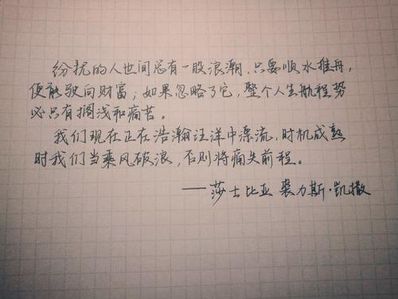 纷扰的人世间总有一股浪潮，只要顺水推舟，
便能驶向财富；如果忽略了它，整个人生航程势
必只有搁浅和痛苦。
我们现在正在浩瀚汪洋中漂流，时机成熟
时我们当乘风破浪，否则将痛失前程。
——莎士比亚 裘力斯·凯撒